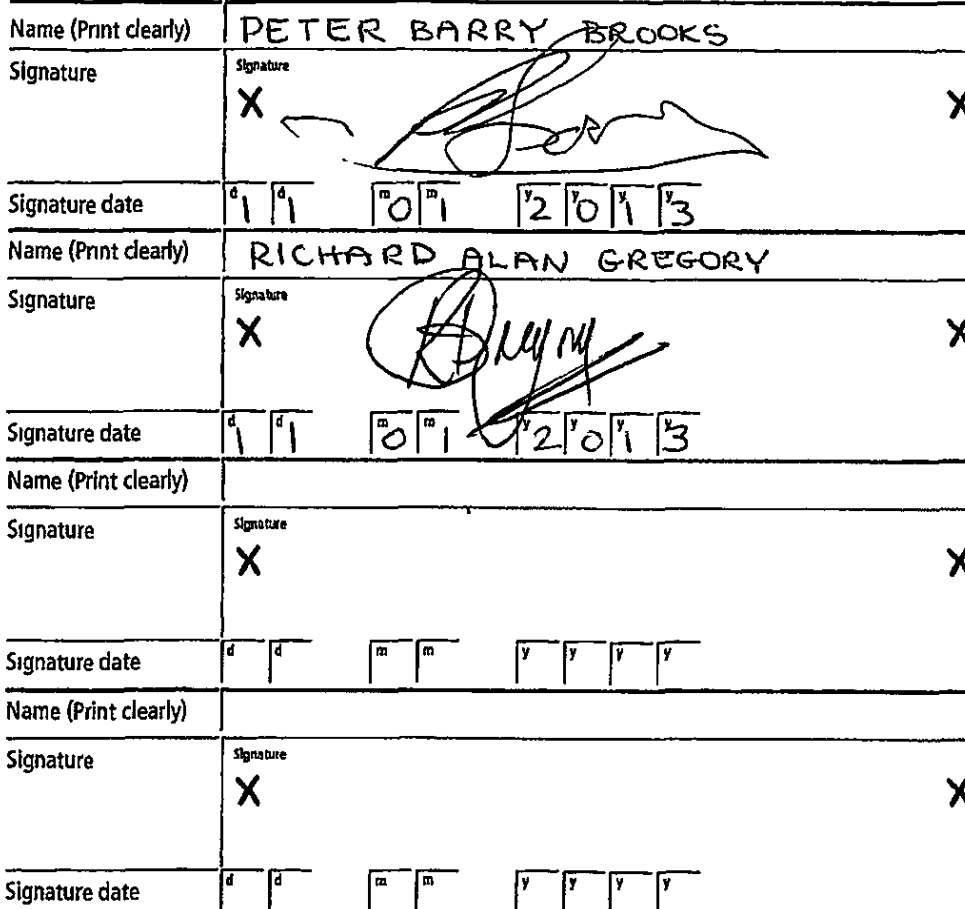 Name (Print clearly) PETER BARRY BROOKS
Signature Signature
X X
Signature date d1 d1 m0 m1 y2 y0 y1 y3
Name (Print clearly) RICHARD ALAN GREGORY
Signature Signature
X X
Signature date d1 d1 m0 m1 y2 y0 y1 y3
Name (Print clearly)
Signature Signature
X X
Signature date d d m m y y y y
Name (Print clearly)
Signature Signature
X X
Signature date d d m m y y y y